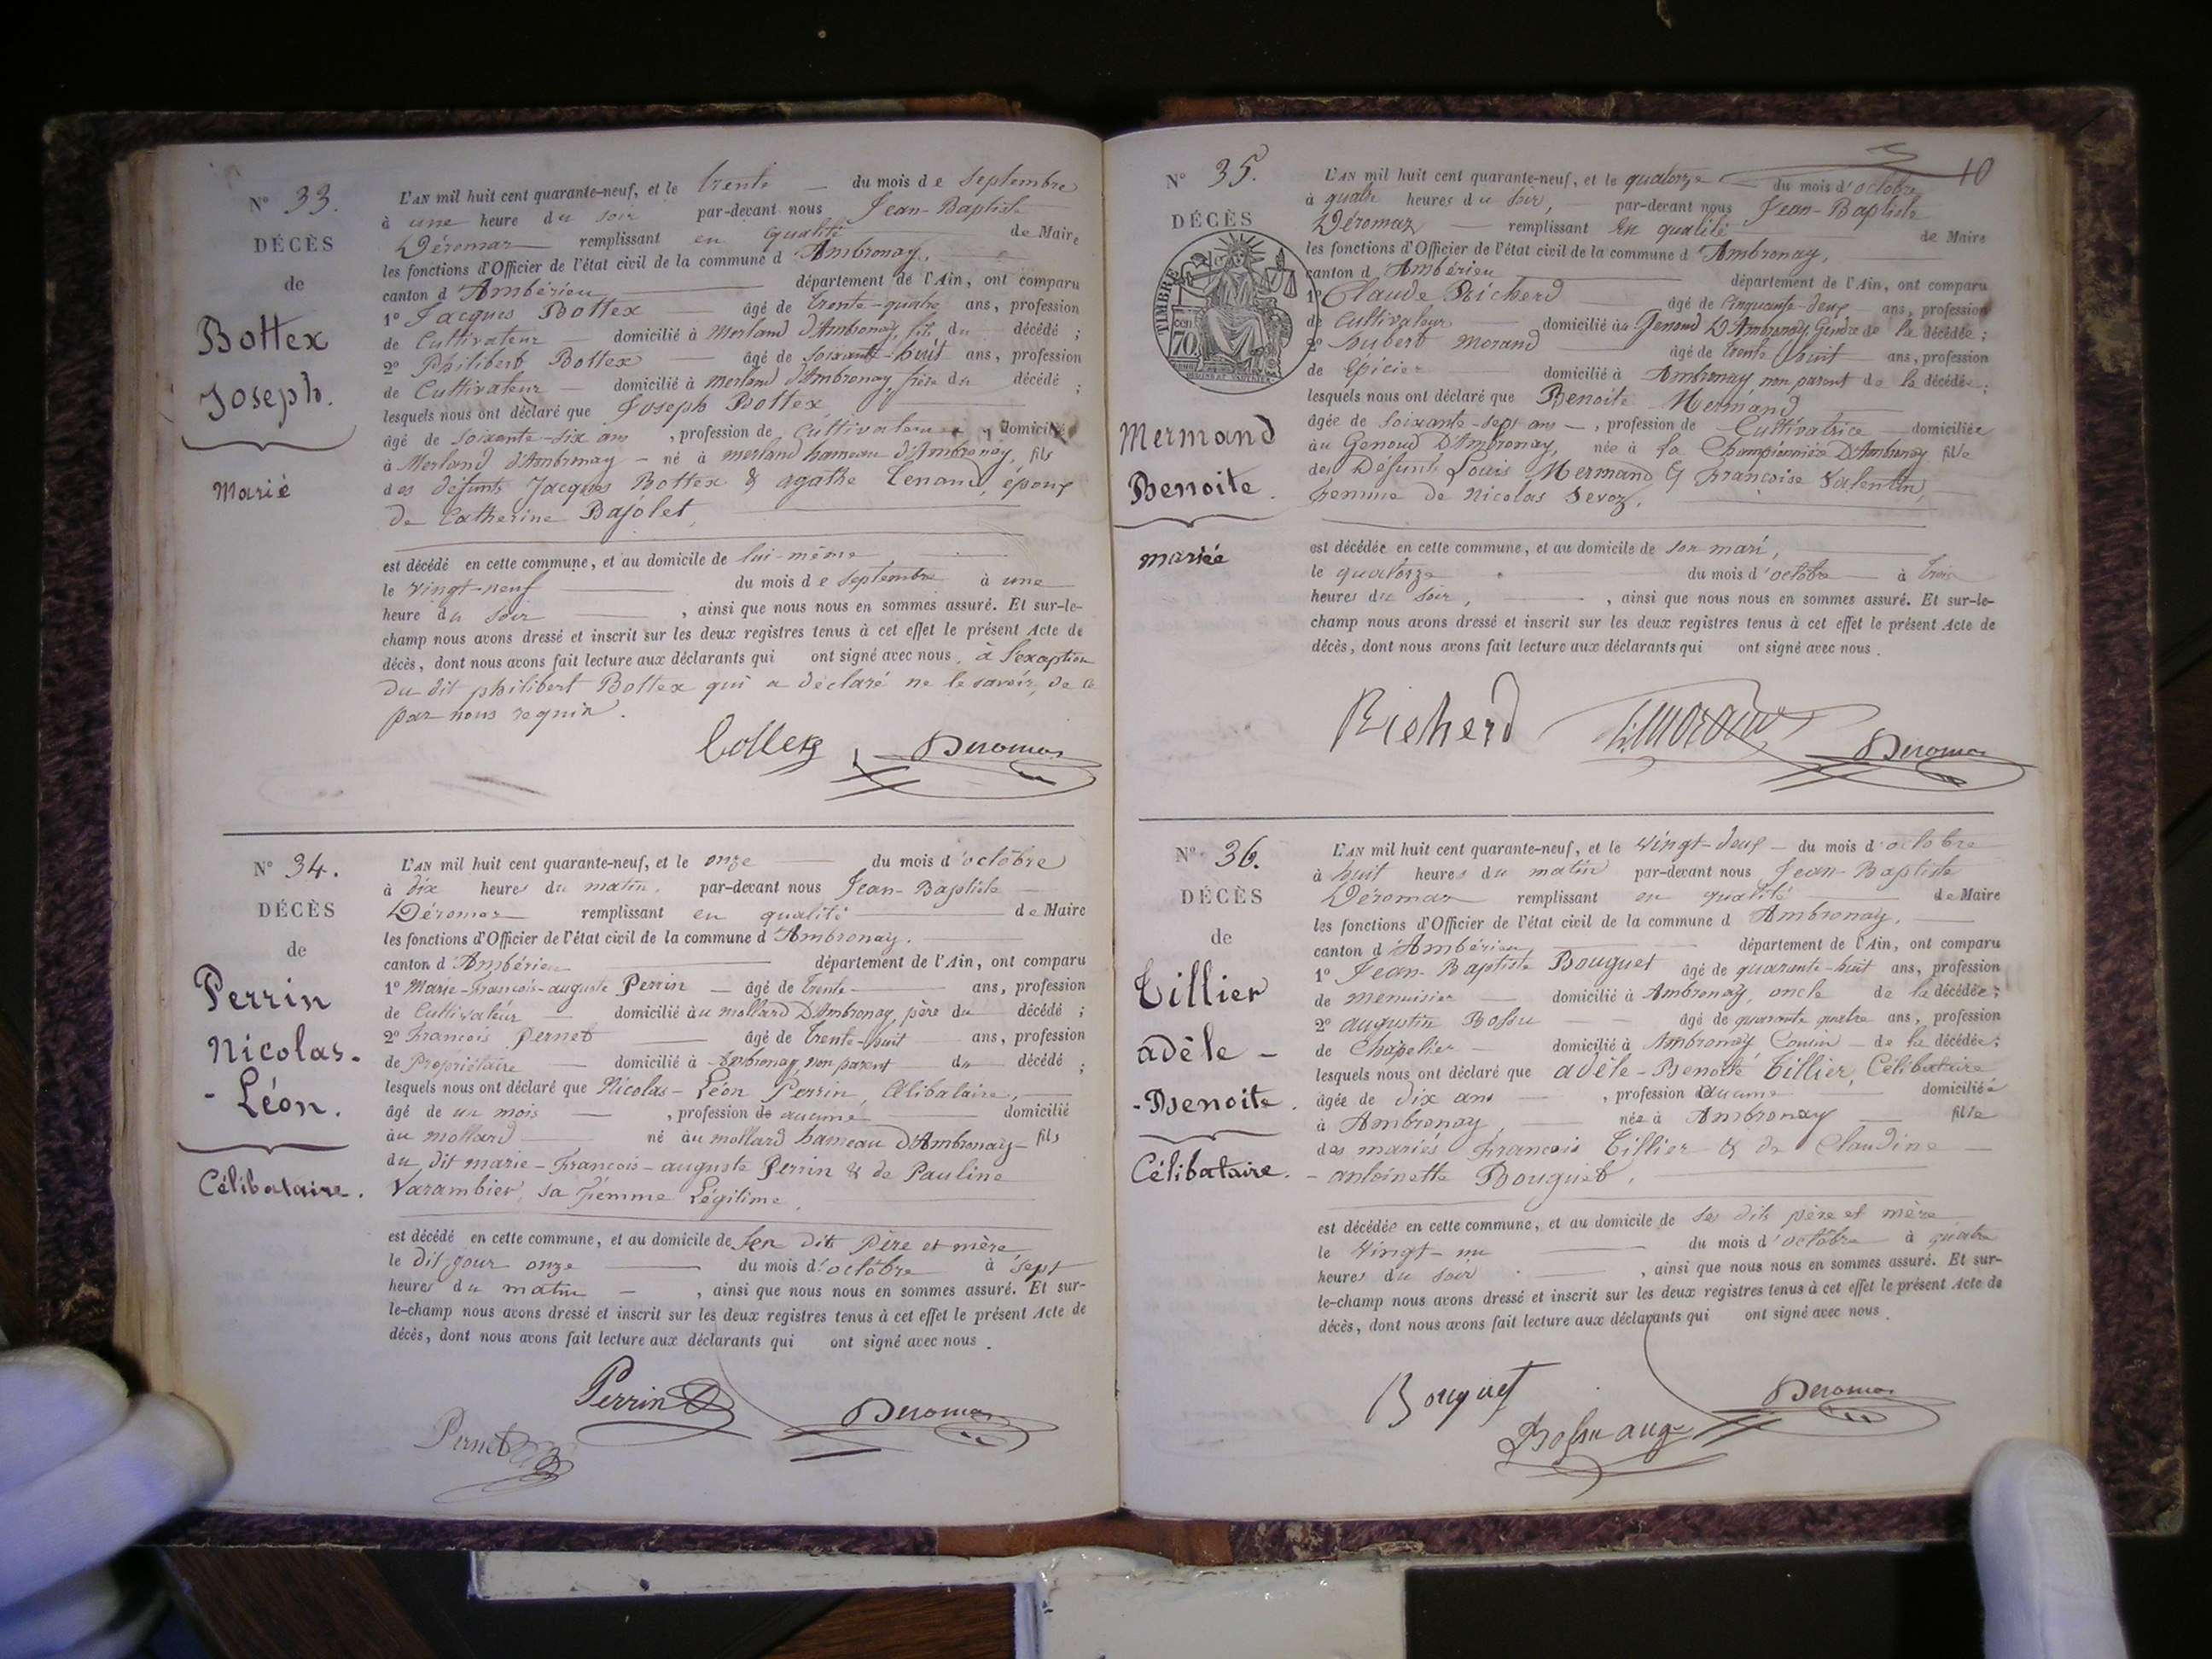 N° 33.
DÉCÈS
de
Bottex
Joseph.
Marié
L'AN mil huit cent quarante-neuf, et le trente du mois de Septembre
à une heure du soir par-devant nous Jean-Baptiste
Déromas remplissant en qualité de Maire
les fonctions d'Officier de l'état civil de la commune d'Ambronay,
canton d'Ambérieu département de l'Ain, ont comparu
1° Jacques Bottex âgé de trente-quatre ans, profession
de Cultivateur domicilié à Merland d'Ambronay, fils du décédé ;
2° Philibert Bottex âgé de soixante-huit ans, profession
de Cultivateur domicilié à Merland d'Ambronay, frère du décédé ;
lesquels nous ont déclaré que Joseph Bottex
âgé de soixante-six ans, profession de Cultivateur, domicilié
à Merland d'Ambronay – né à merland hameau d'Ambronay, fils
des défunts Jacques Bottex & agathe Tenand, époux
de Catherine Bajolet,
est décédé en cette commune, et au domicile de lui-même,
le vingt-neuf du mois de Septembre à une
heure du soir, ainsi que nous nous en sommes assuré. Et sur-le-
champ nous avons dressé et inscrit sur les deux registres tenus à cet effet le présent Acte de
décès, dont nous avons fait lecture aux déclarants qui ont signé avec nous, à l'exception
du dit philibert Bottex qui a déclaré ne le savoir, de ce
par nous requis.
Deromas
N° 34.
DÉCÈS
de
Perrin
Nicolas-
-Léon.
Célibataire.
L'AN mil huit cent quarante-neuf, et le onze du mois d'octobre
à dix heures du matin, par-devant nous Jean-Baptiste
Déromas remplissant en qualité de Maire
les fonctions d'Officier de l'état civil de la commune d'Ambronay.
canton d'Ambérieu département de l'Ain, ont comparu
1° Marie-François-auguste Perrin – âgé de trente ans, profession
de Cultivateur domicilié au mollard D'Ambronay, père du décédé ;
2° François Pernet âgé de trente-huit ans, profession
de Propriétaire domicilié à Ambronay, non parent du décédé ;
lesquels nous ont déclaré que Nicolas-Léon Perrin, Célibataire,
âgé de un mois, profession de aucune domicilié
au mollard né au mollard hameau d'Ambronay – fils
du dit marie-François-auguste Perrin & de Pauline
Varambier, sa femme Légitime,
est décédé en cette commune, et au domicile de ses dits Père et mère,
le dit jour onze du mois d'octobre à sept
heures du matin –, ainsi que nous nous en sommes assuré. Et sur-
le-champ nous avons dressé et inscrit sur les deux registres tenus à cet effet le présent Acte de
décès, dont nous avons fait lecture aux déclarants qui ont signé avec nous.
Perrin
Deromas
Pernet
10
N° 35.
DÉCÈS
TIMBRE
70
Mermand
Benoite.
mariée
L'AN mil huit cent quarante-neuf, et le quatorze du mois d'octobre
à quatre heures du soir, par-devant nous Jean-Baptiste
Déromas remplissant en qualité de Maire
les fonctions d'Officier de l'état civil de la commune d'Ambronay,
canton d'Ambérieu département de l'Ain, ont comparu
1° Claude Richerd âgé de Cinquante-deux ans, profession
de Cultivateur domicilié au Genoud D'Ambronay Gendre de la décédée ;
2° hubert Morand âgé de trente huit ans, profession
de Epicier domicilié à Ambronay, non parent de la décédée ;
lesquels nous ont déclaré que Benoite Mermand
âgée de soixante-sept ans –, profession de Cultivatrice domiciliée
au Genoud D'Ambronay, née à la Championnière D'Ambronay fille
des Défunts Louis Mermand & françoise Valentin,
femme de Nicolas Sevoz,
est décédée en cette commune, et au domicile de son mari,
le quatorze du mois d'octobre à trois
heures du soir, ainsi que nous nous en sommes assuré. Et sur-le-
champ nous avons dressé et inscrit sur les deux registres tenus à cet effet le présent Acte de
décès, dont nous avons fait lecture aux déclarants qui ont signé avec nous.
Richerd
Deromas
N° 36.
DÉCÈS
de
Tillier
adèle-
-Benoite.
Célibataire.
L'AN mil huit cent quarante-neuf, et le vingt-deux – du mois d'octobre
à huit heures du matin par-devant nous Jean-Baptiste
Déromas remplissant en qualité de Maire
les fonctions d'Officier de l'état civil de la commune d'Ambronay,
canton d'Ambérieu département de l'Ain, ont comparu
1° Jean-Baptiste Bouquet âgé de quarante-huit ans, profession
de menuisier domicilié à Ambronay, oncle de la décédée ;
2° augustin Bossu âgé de quarante quatre ans, profession
de Chapelier domicilié à Ambronay Cousin – de la décédée ;
lesquels nous ont déclaré que adèle-Benoite Tillier, Célibataire
âgée de dix ans, profession d'aucune domiciliée
à Ambronay, née à Ambronay fille
des mariés François Tillier & de Claudine
-antoinette Bouquet,
est décédée en cette commune, et au domicile de ses dits père et mère
le vingt-un du mois d'octobre à quatre
heures du soir, ainsi que nous nous en sommes assuré. Et sur-
le-champ nous avons dressé et inscrit sur les deux registres tenus à cet effet le présent Acte de
décès, dont nous avons fait lecture aux déclarants qui ont signé avec nous.
Bouquet
Deromas
Bossu aug